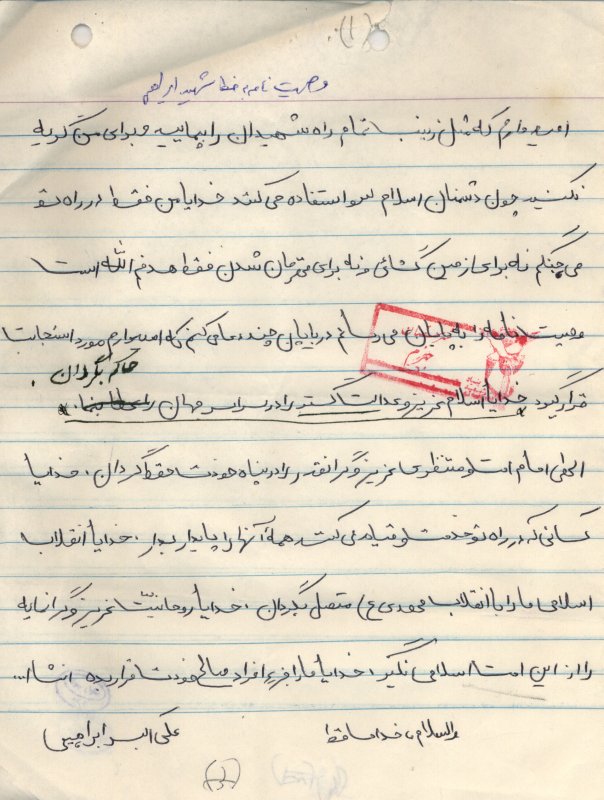 (۱)
وصیت نامه بخط شهید ابراهیم
امیدوارم که مثل زینب تمام راه شهیدان را بپیمایید و برای من گریه
نکنید چون دشمنان اسلام سو استفاده می کنند خدایا من فقط در راه تو
می جنگم نه برای زمین گشائی و نه برای قهرمان شدن فقط هدفم الله است
وصیت نامه را به پایان می رسانم در پایان چند دعا می کنم که امیدوارم مورد استجابت
حاکم بگردان .
قرار گیرد خدایا اسلام عزیز و عدالت گستر را در سراسر جهان
الهی امام امت و منتظری عزیز و گرانقدر را در پناه خودت حفظ گردان ، خدایا
کسانی که در راه تو خدمت و قیام می کنند همه آنها را پایدار بدار ، خدایا انقلاب
اسلامی ما را با انقلاب مهدی (ع) متصل بگردان ، خدایا روحانیت عزیز و گرانمایه
را از این امت اسلامی نگیر ، خدایا ما را جزء افراد صالح خودت قرار بده انشاا...
والسلام ، خداحافظ
علی اکبر ابراهیمی